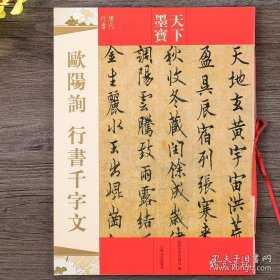 天下
墨寶
唐代
行書
歐陽詢 行書千字文
天地玄黃宇宙洪
盈昃辰宿列張寒來
秋收冬藏閏餘成歲
調陽雲騰致雨露結
金生麗水玉出崐崗